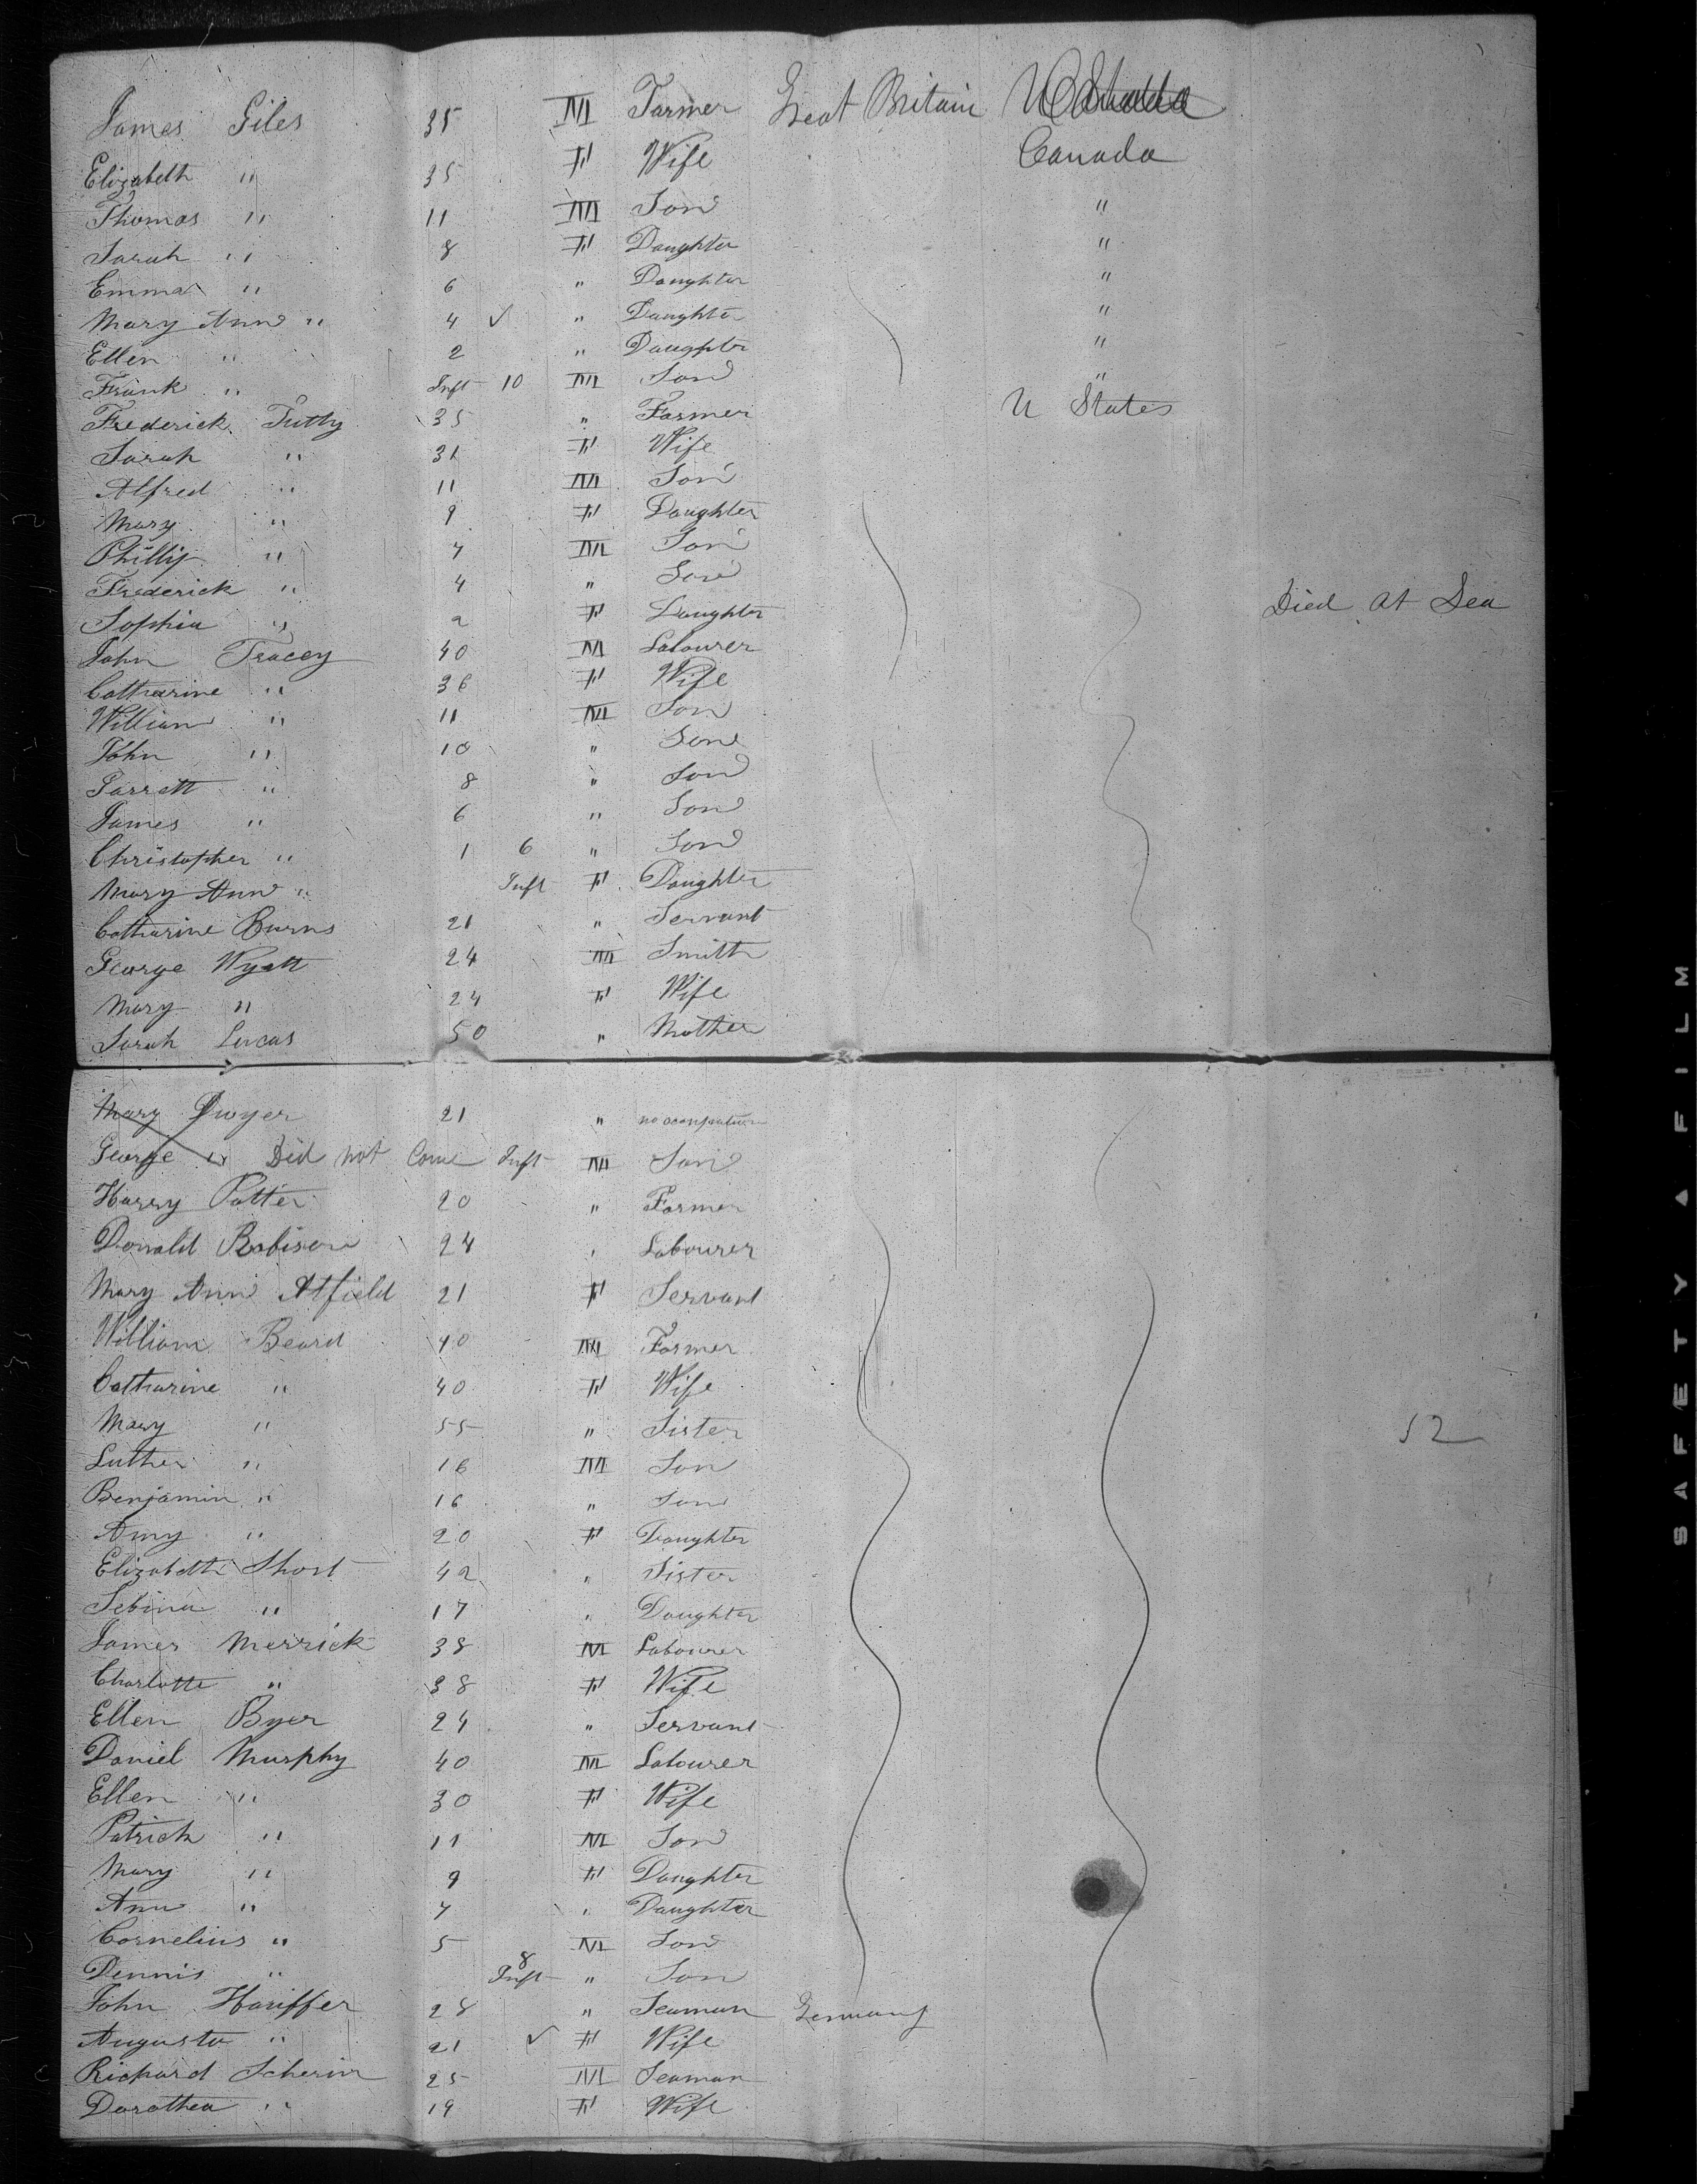 James Giles 35 M Farmer Great Britain
Elizabeth " 35 F Wife Canada
Thomas " 11 M Son "
Sarah " 8 F Daughter "
Emma " 6 " Daughter "
Mary Ann " 4 ✓ " Daughter "
Ellen " 2 " Daughter "
Frank " Inft 10 M Son "
Frederick Tutty 35 " Farmer U States
Sarah " 31 F Wife
Alfred " 11 M Son
Mary " 9 F Daughter
Phillip " 7 M Son
Frederick " 4 " Son
Sophia " 2 F Daughter Died At Sea
John Tracey 40 M Labourer
Catharine " 36 F Wife
William " 11 M Son
John " 10 " Son
Garrett " 8 " Son
James " 6 " Son
Christopher " 1 6 " Son
Mary Ann " Inft F Daughter
Catharine Burns 21 " Servant
George Wyatt 24 M Smith
Mary " 24 F Wife
Sarah Lucas 50 " Mother
Mary Dwyer 21 " no occupation
George " Did not Come Inft M Son
Harry Potter 20 " Farmer
Donald Robison 24 " Labourer
Mary Ann Atfield 21 F Servant
William Beard 40 M Farmer
Catharine " 40 F Wife
Mary " 55 " Sister
52
Luther " 16 M Son
Benjamin " 16 " Son
Amy " 20 F Daughter
Elizabeth Short 42 " Sister
Sebina " 17 " Daughter
James Merrick 38 M Labourer
Charlotte " 38 F Wife
Ellen Byer 24 " Servant
Daniel Murphy 40 M Labourer
Ellen " 30 F Wife
Patrick " 11 M Son
Mary " 9 F Daughter
Ann " 7 " Daughter
Cornelius " 5 M Son
Dennis " 8 Inft " Son
John Hariffer 28 " Seaman Germany
Augusta " 21 ✓ F Wife
Richard Scherin 25 M Seaman
Dorothea " 19 F Wife
SAFETY FILM